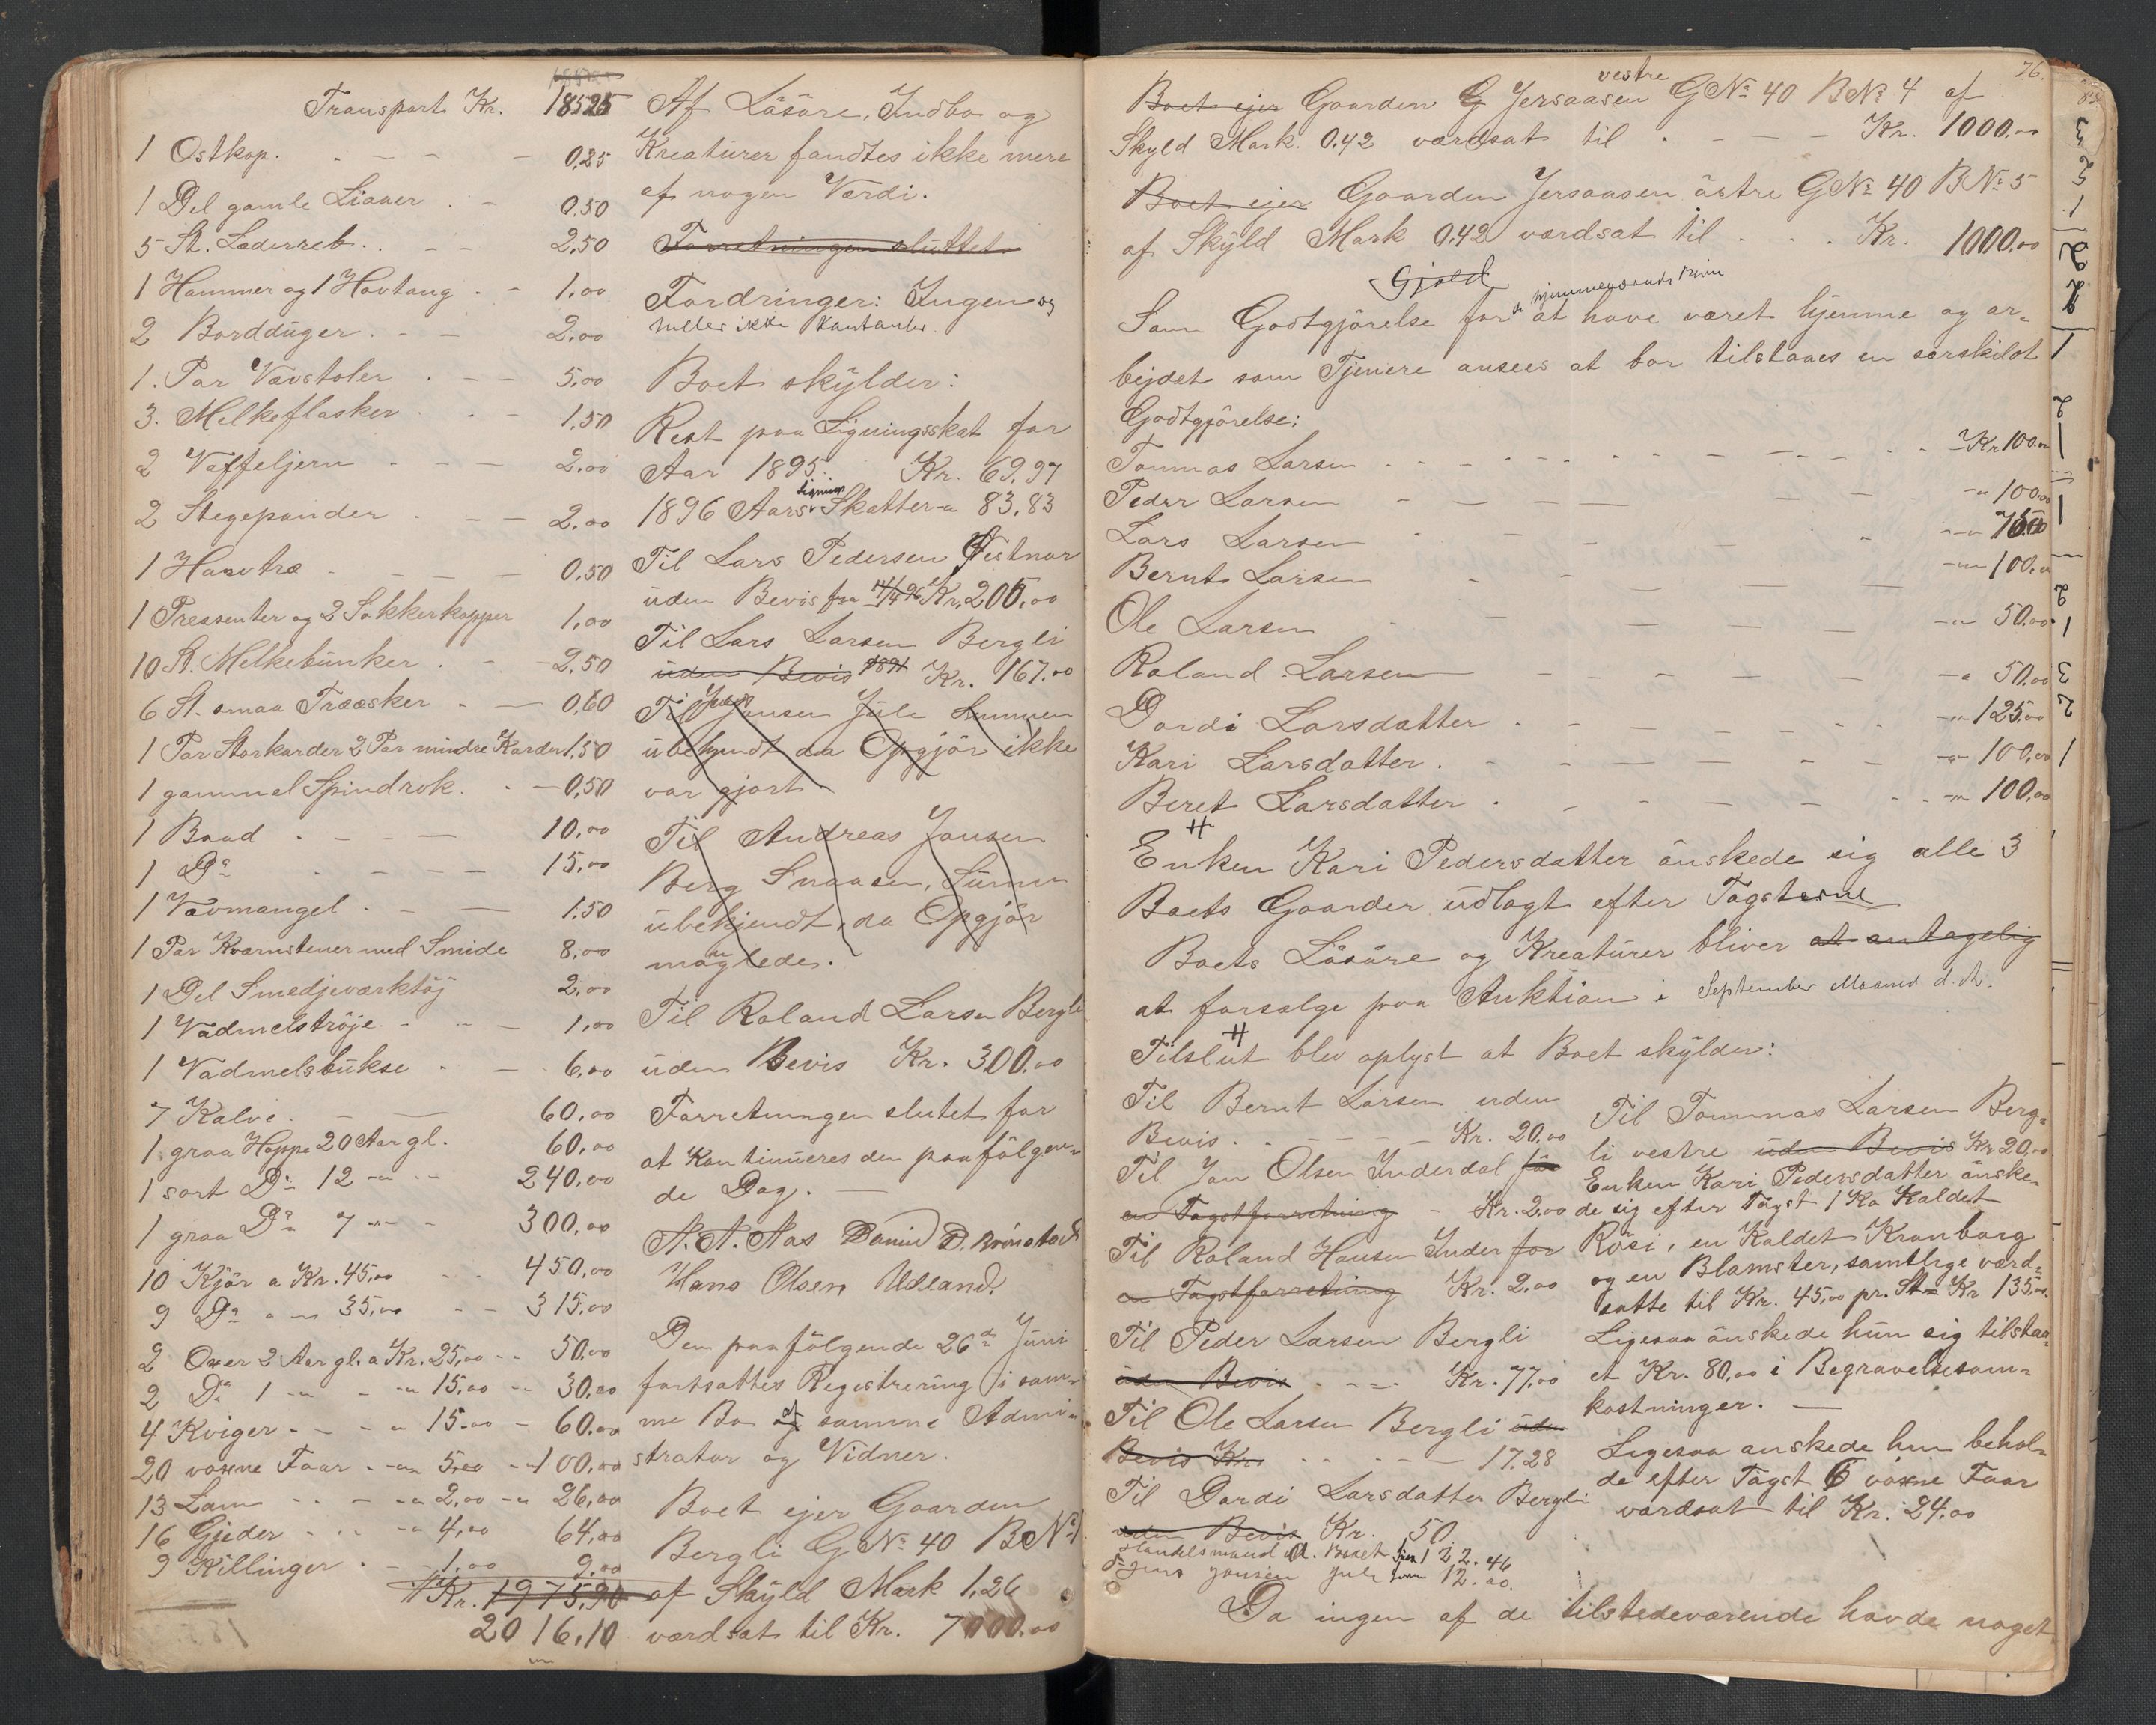 Transport Kr. 185.25
1 Ostkop. 0,25
1 Del gamle Liaaer 0,50
5 St. Læderreb 2,50
1 Hammer og 1 Hovtang 1,00
2 Bordduger 2,00
1 Par Vævstoler 5,00
3 Melkeflasker 1,50
2 Vaffeljern 2,00
2 Stegepander 2,00
1 Havrtræ 0,50
1 Pressenter og 2 Sokkerkopper 1,00
10 St. Melkebunker 2,50
6 St. smaa Trææsker 0,60
1 Par Storkarder 2 Par mindre Karder 1,50
1 gammel Spindrok 0,50
1 Baad 10,00
1 Do 15,00
1 Vævmangel 1.50
1 Par Kværnstener med Smide 8,00
1 Del Smedjeværktöj 2,00
1 Vadmelströje 1,00
1 Vadmelsbukse 6,00
7 Kalve 60,00
1 graa Hoppe 20 Aar gl. 60,00
1 sort Do 12 " " 240,00
1 graa Do 7 " " 300,00
10 Kjör a Kr. 45,00 450,00
9 Do a " 35,00 315,00
2 Oxer 2 Aar gl. a Kr. 25,00 50,00
2 Do 1 " " 15,00 30,00
4 Kviger " 15,00 60,00
20 voxne Faar " 5,00 100,00
13 Lam " 2,00 26,00
16 Gjeder " 4,00 64,00
9 Killinger 1,00 9,00
Kr. 1975,90
2016,10
Af Lösöre, Indbo og
Kreaturer fandtes ikke mere
af nogen Værdi.
Forretningen sluttet
Fordringer: Ingen og
heller ikke Kontanter.
Boet skylder:
Rest paa Ligningsskat for
Aar 1895. Kr. 69,97
1896 Aars Lignings Skatter " 83,83
Til Lars Pedersen Festnar
uden Bevis fra 14/4 96 Kr. 205,00
Til Lars Larsen Bergli
uden Bevis 1891 Kr. 167,00
Til Jens Jansen Jule Summen
ubekjendt da Opgjör ikke
var gjort
Til Andreas Jansen
Berg Snaasen, Summ
ubekjendt, da Opgjör
manglede.
Til Roland Larsen Bergli
uden Bevis Kr. 300,00
Forretningen slutet for
at Kontinueres den paafölgen-
de Dag.
A. A. Aas Daniel D. Brönstad
Hans Olsen Udland.
Den paafölgende 26de Juni
fortsattes Registrering i sam-
me Bo af samme Admini-
strator og Vidner.
Boet ejer Gaarden
Bergli G No 40 B No 1
af Skyld Mark 1,26
værdsat til Kr. 7000,00
76.
Boet ejer Gaarden G Jersaasen vestre G No 40 B No 4 af
Skyld Mark. 0,42 værdsat til Kr. 1000,00
Boet ejer Gaarden Jersaasen östre G No 40 B No 5
af Skyld Mark 0.42 værdsat til Kr. 1000,00
Gjæld
Som Godtgjörelse for at have været hjemme og ar-
bejdet som Tjenere ansees at bör tilstaaes en særskildt
Godtgjörelse:
Tommas Larsen Kr 100.00
Peder Larsen " 100,00
Lars Larsen " 75.00
Bernt Larsen " 100,00
Ole Larsen " 50,00
Roland Larsen " 50,00
Dordi Larsdatter " 125,00
Kari Larsdatter " 100,00
Beret Larsdatter " 100,00
Enken Kari Pedersdatter önskede sig alle 3
Boets Gaarder udlagt efter Tagsterne
Boets Lösöre og Kreaturer bliver at antagelig
at forsælge paa Auktion i September Maaned d. A.
Tilslut blev oplyst at Boet skylder:
Til Bernt Larsen uden
Bevis Kr. 20,00
Til Jon Olsen Inderdal for
en Tagstforretning Kr. 2,00
Til Roland Hansen Inder for
en Tagstforretning Kr. 2,00
Til Peder Larsen Bergli
uden Bevis Kr. 77,00
Til Ole Larsen Bergli uden
Bevis Kr. 17.28
Til Dordi Larsdatter Bergli
uden Bevis Kr. 50
Handelsmand 122.46
Jens Jansen Jule 12.00.
Til Tommas Larsen Berg-
li vestre uden Bevis Kr 20,00
Enken Kari Pedersdatter önske-
de sig efter Tagst 1 Ko Kaldet
Rösi, en Kaldet Kranborg
og en Blamster, samtlige værd-
satte til Kr. 45,00 pr. St = Kr 135,00.
Ligesaa önskede hun sig tilstaa-
et Kr. 80,00 i Begravelsesom-
kostninger.
Ligesaa önskede hun behol-
de efter Tagst 6 voxne Faar
værdsat til Kr. 24.00
Da ingen af de tilstedeværende havde noget